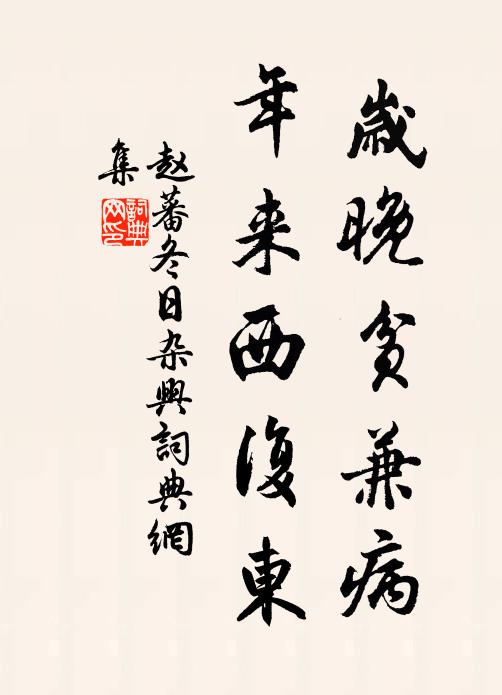 歲晚貧兼病
年来西復東
赵蕃冬日杂興詞典網
集
詞典
网印